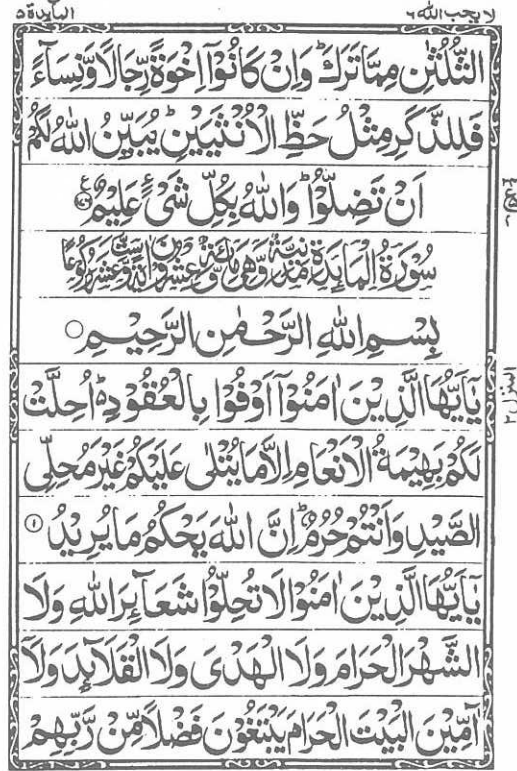 لا یحب الله ٦
المآئدة ٥
الثُّلُثٰنِ مِمَّا تَرَكَ ؕ وَاِنْ كَانُوْۤا اِخْوَةً رِّجَالًا وَّنِسَآءً
فَلِلذَّكَرِ مِثْلُ حَظِّ الْاُنْثَيَيْنِ ؕ يُبَيِّنُ اللّٰهُ لَكُمْ
اَنْ تَضِلُّوْا ؕ وَاللّٰهُ بِكُلِّ شَیْءٍ عَلِيْمٌ
سُوْرَةُ الْمَآئِدَةِ مَدَنِيَّةٌ وَّهِیَ مِائَةٌ وَّعِشْرُوْنَ اٰيَةً وَّسِتَّ عَشَرَ رُكُوْعًا
بِسْمِ اللّٰهِ الرَّحْمٰنِ الرَّحِيْمِ ○
يٰۤاَيُّهَا الَّذِيْنَ اٰمَنُوْۤا اَوْفُوْا بِالْعُقُوْدِ ؕ اُحِلَّتْ
لَكُمْ بَهِيْمَةُ الْاَنْعَامِ اِلَّا مَا يُتْلٰى عَلَيْكُمْ غَيْرَ مُحِلِّی
الصَّيْدِ وَاَنْتُمْ حُرُمٌ ؕ اِنَّ اللّٰهَ يَحْكُمُ مَا يُرِيْدُ ①
يٰۤاَيُّهَا الَّذِيْنَ اٰمَنُوْا لَا تُحِلُّوْا شَعَآئِرَ اللّٰهِ وَلَا
الشَّهْرَ الْحَرَامَ وَلَا الْهَدْیَ وَلَا الْقَلَآئِدَ وَلَاۤ
آٰمِّيْنَ الْبَيْتَ الْحَرَامَ يَبْتَغُوْنَ فَضْلًا مِّنْ رَّبِّهِمْ
المنزل ٢